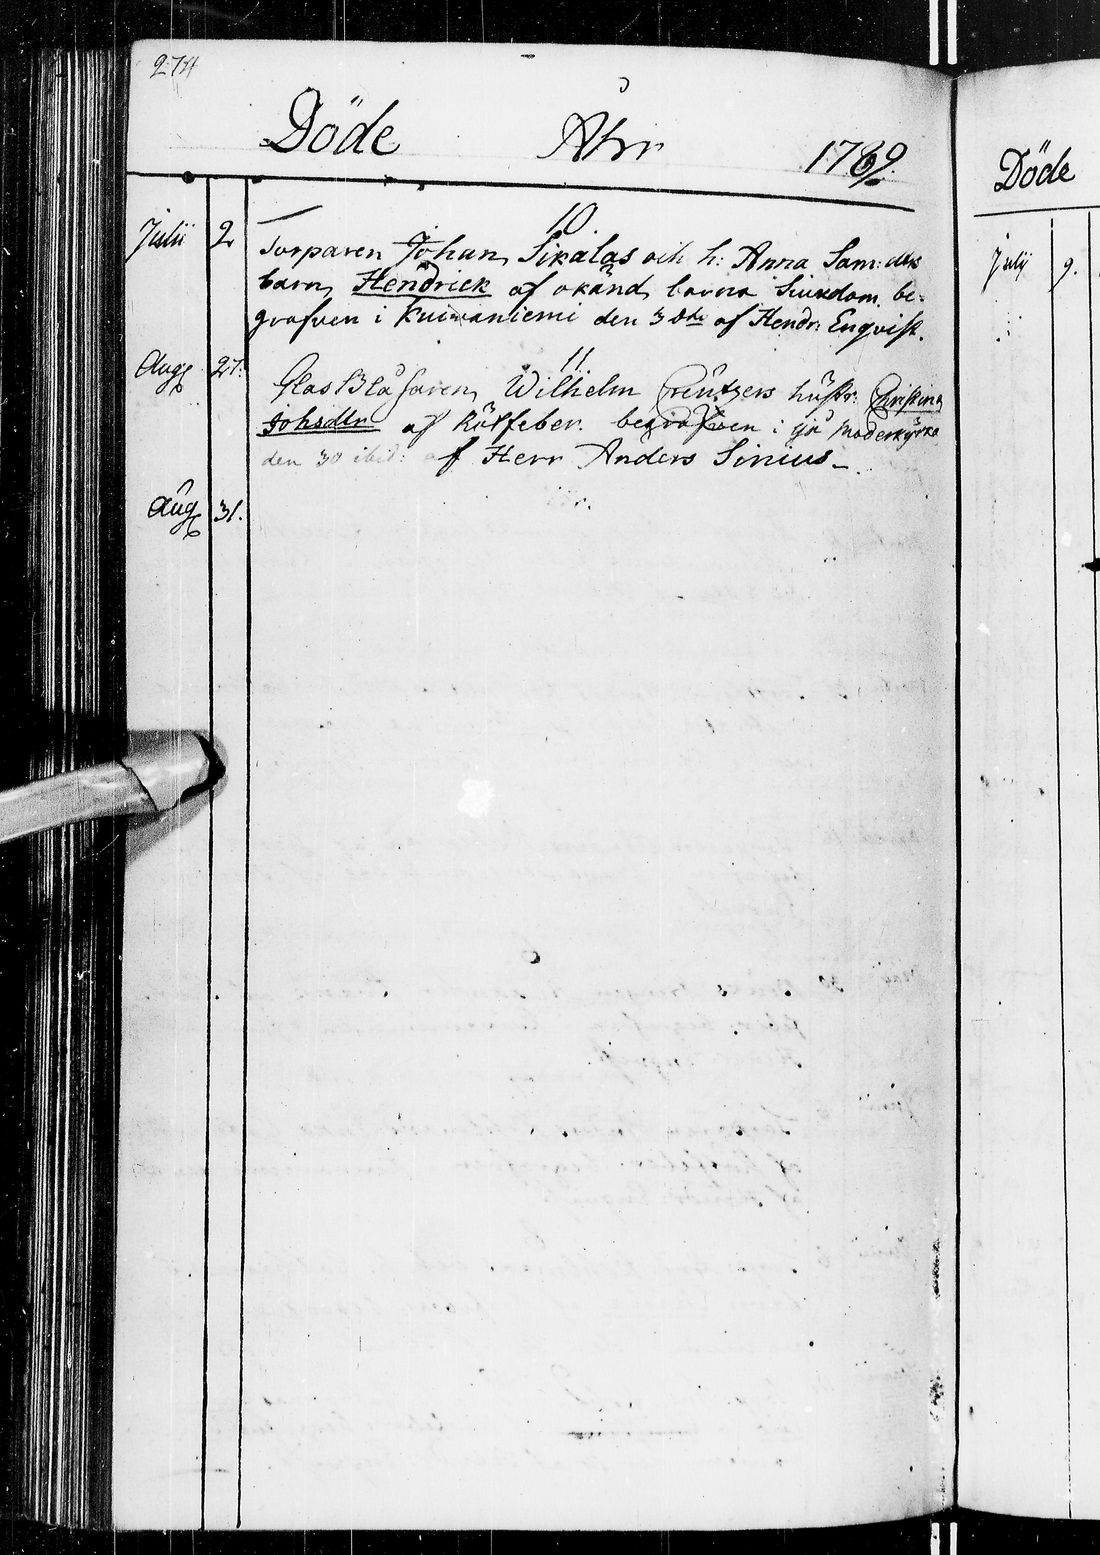 274
Döde Åhr 1789.
10.
Julii 2 Torparen Johan Sikalas och h: Anna Sam: dtrs
barn Hendrick af okänd barna Siukdom. be-
grafven i Kuivaniemi den 3 dito af Hendr: Enqvist.
11.
Aug 27. Glas Blåsaren Wilhelm Creutzers hustr: Christina
Johsdtr af Rötfeber. begrafven i Ijå Moderkyrka
den 30 ibid: af Herr Anders Simius
Aug 31.
Döde
Julij 9.